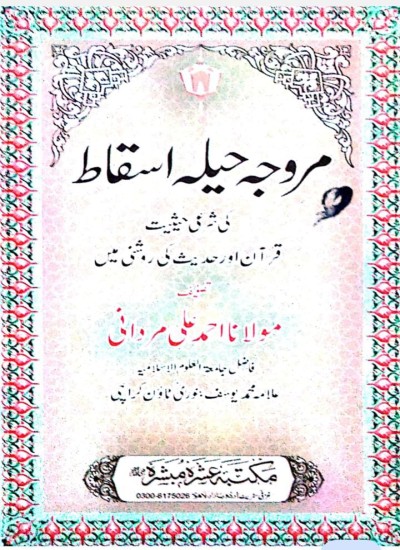 مروجہ حیلہ اسقاط
کی شرعی حیثیت
قرآن اور حدیث کی روشنی میں
تصنیف
مولانا احمد علی مردانی
فاضل جامعۃ العلوم الاسلامیہ
علامہ محمد یوسف بنوری ٹاؤن کراچی
مکتبہ عشرہ مبشرہ
0300-6175026